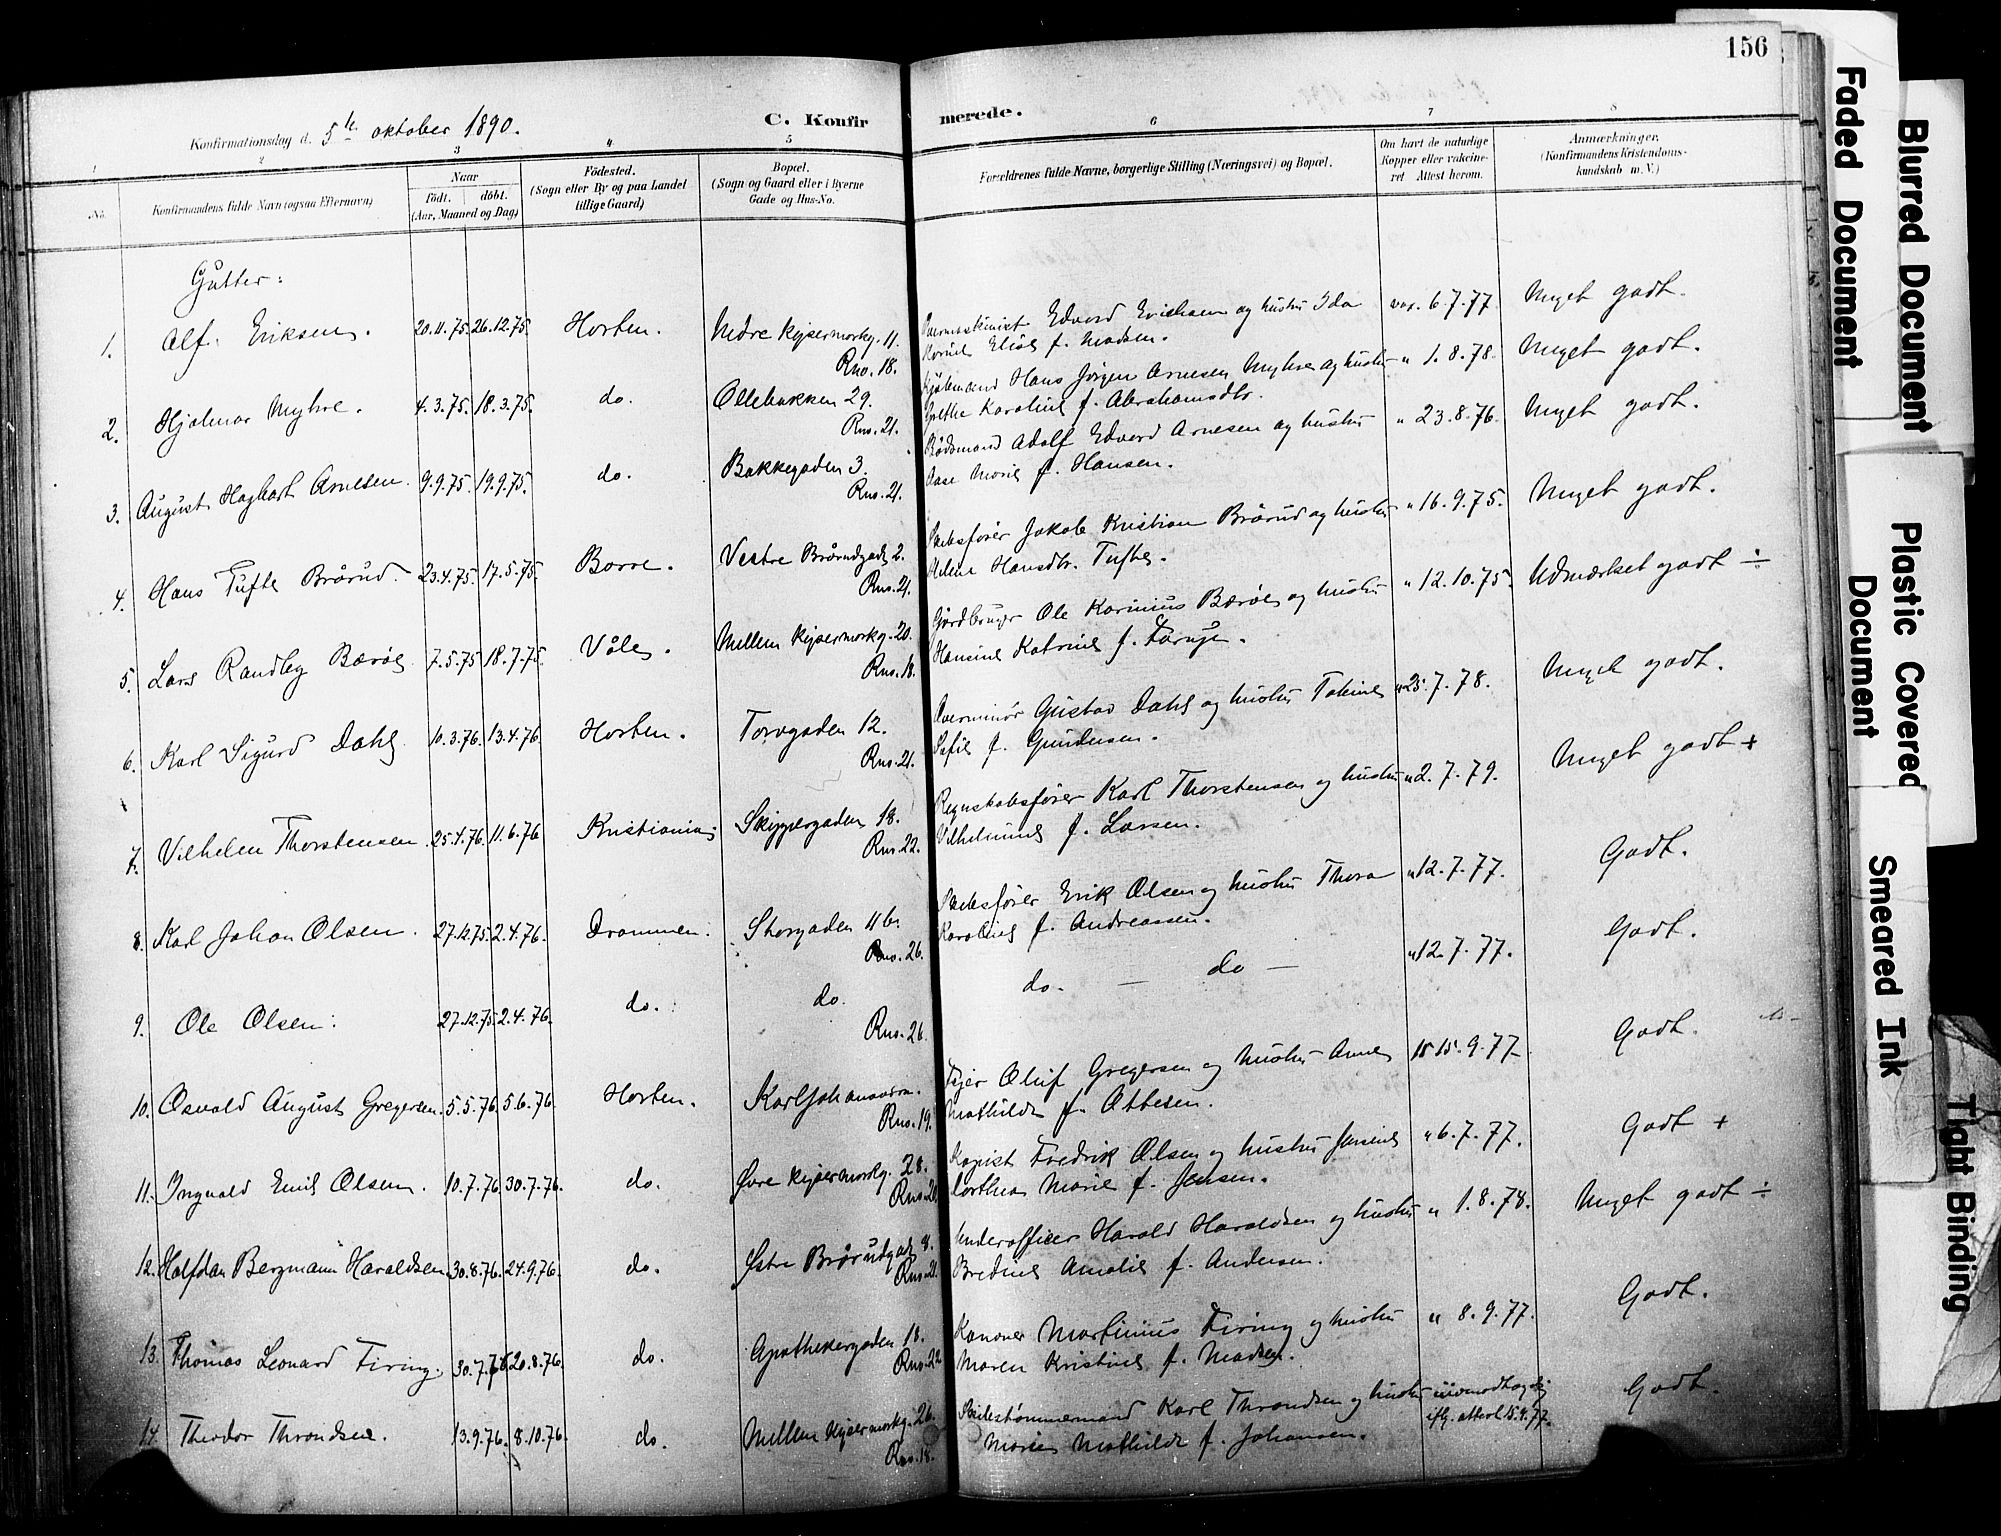 156
Konfirmationsdag d. 5te oktober 1890.
C. Konfirmerede.
1 2 3 4 5 6 7 8
No.
Konfirmandens fulde Navn (ogsaa Efternavn)
Naar
Födt. döbt.
(Aar, Maaned og Dag)
Födested.
(Sogn eller By og paa Landet
tillige Gaard)
Bopæl.
(Sogn og Gaard eller i Byerne
Gade og Hus-No.
Forældrenes fulde Navne, borgerlige Stilling (Næringsvei) og Bopæl.
Om havt de naturlige
Kopper eller vakcine-
ret Attest herom.
Anmærkninger.
(Konfirmandens Kristendoms-
kundskab m. V.)
Gutter:
1. Alf Eriksen. 20.11.75. 26.12.75. Horten. Nedre Keisermorkg. 11. Rno. 18.
Overmaskinist Edvard Erichsen og hustru Ida vax. 6.7.77. Meget godt.
Elise f. Madsen.
2. Hjalmar Myhre. 4.3.75. 18.3.75. do. Ollebakken 29. Rno. 21.
Hans Jörgen Arnesen Myhre og hustru " 1.8.78. Meget godt.
Grethe Karoline f. Abrahamsdtr.
3. August Hagbart Arnesen. 9.9.75. 19.9.75. do. Bakkegaden 3. Rno. 21.
Bådsmand Adolf Edvard Arnesen og hustru " 23.8.76. Meget godt.
Aase Marie f. Hansen.
4. Hans Tufte Brårud. 23.4.75. 17.5.75. Borre. Vestre Brårudgade 2. Rno. 21.
Skibsfører Jakob Kristian Brårud og hustru " 16.9.75. Meget godt.
Helene Hansdtr. Tufte.
5. Lars Randby Bærøe 7.5.75 18.7.75. Våle. Mellem Keisermorkg. 20. Rno. 18.
Gårdbruger Ole Karinius Bærøe og hustru " 12.10.75. Udmærket godt ÷
Hansine Katrine f.
6. Karl Sigurd Dahl. 10.3.76. 13.4.76. Horten. Torvgaden 12. Rno. 21.
Overminør Gustav Dahl og hustru Tobine " 25.7.78. Meget godt.
Sofie f. Gundersen.
7. Vilhelm Thorstensen 25.4.76. 11.6.76 Kristiania Skippergaden 18. Rno. 22.
Regnskabsfører Karl Thorstensen og hustru " 2.7.79. Meget godt +
Vilhelmine f. Larsen.
8. Karl Johan Olsen. 27.12.75. 2.4.76. Drammen. Storgaden 11b. Rno. 26.
Skibsfører Erik Olsen og hustru Thora " 12.7.77. Godt.
Karoline f. Andreassen.
9. Ole Olsen. 27.12.75. 2.4.76. do. do. Rno. 26.
do. — do — " 12.7.77. Godt.
10. Osvald August Gregersen. 5.5.76. 5.6.76. Horten. Karljohansvern. Rno. 19.
Oluf Gregersen og hustru Anne 15.9.77. Godt.
Mathilde f. Ottesen.
11. Ingvald Emil Olsen. 10.7.76. 30.7.76. do. Øvre Keisermorkg. 28. Rno. 20
Kopist Fredrik Olsen og hustru Jensine " 6.7.77. Godt +
Dorthea Marie f. Jensen.
12. Halfdan Bergmann Haraldsen. 30.8.76. 24.9.76. do. Østre Brårudgade 8. Rno. 21.
Underofficer Harald Haraldsen og hustru " 1.8.78. Meget godt ÷
Bredine Amalie f. Andersen.
13. Thomas Leonard Firing. 30.7.76. 20.8.76. do. Apothekergaden 18. Rno. 22
Kanoner Martinius Firing og hustru " 8.9.77. Godt.
Maren Kristine f. Madsen.
14. Theodor Throndsen. 13.9.76. 8.10.76. do. Mellem Keisermorkg. 26. Rno. 18.
Skibstømmermand Karl Throndsen og hustru uimodtagelig Godt.
Marie Mathilde f. Johansen. ifg. attest 15.9.77.
Faded Document
Blurred Document
Plastic Covered
Document
Smeared Ink
Tight Binding